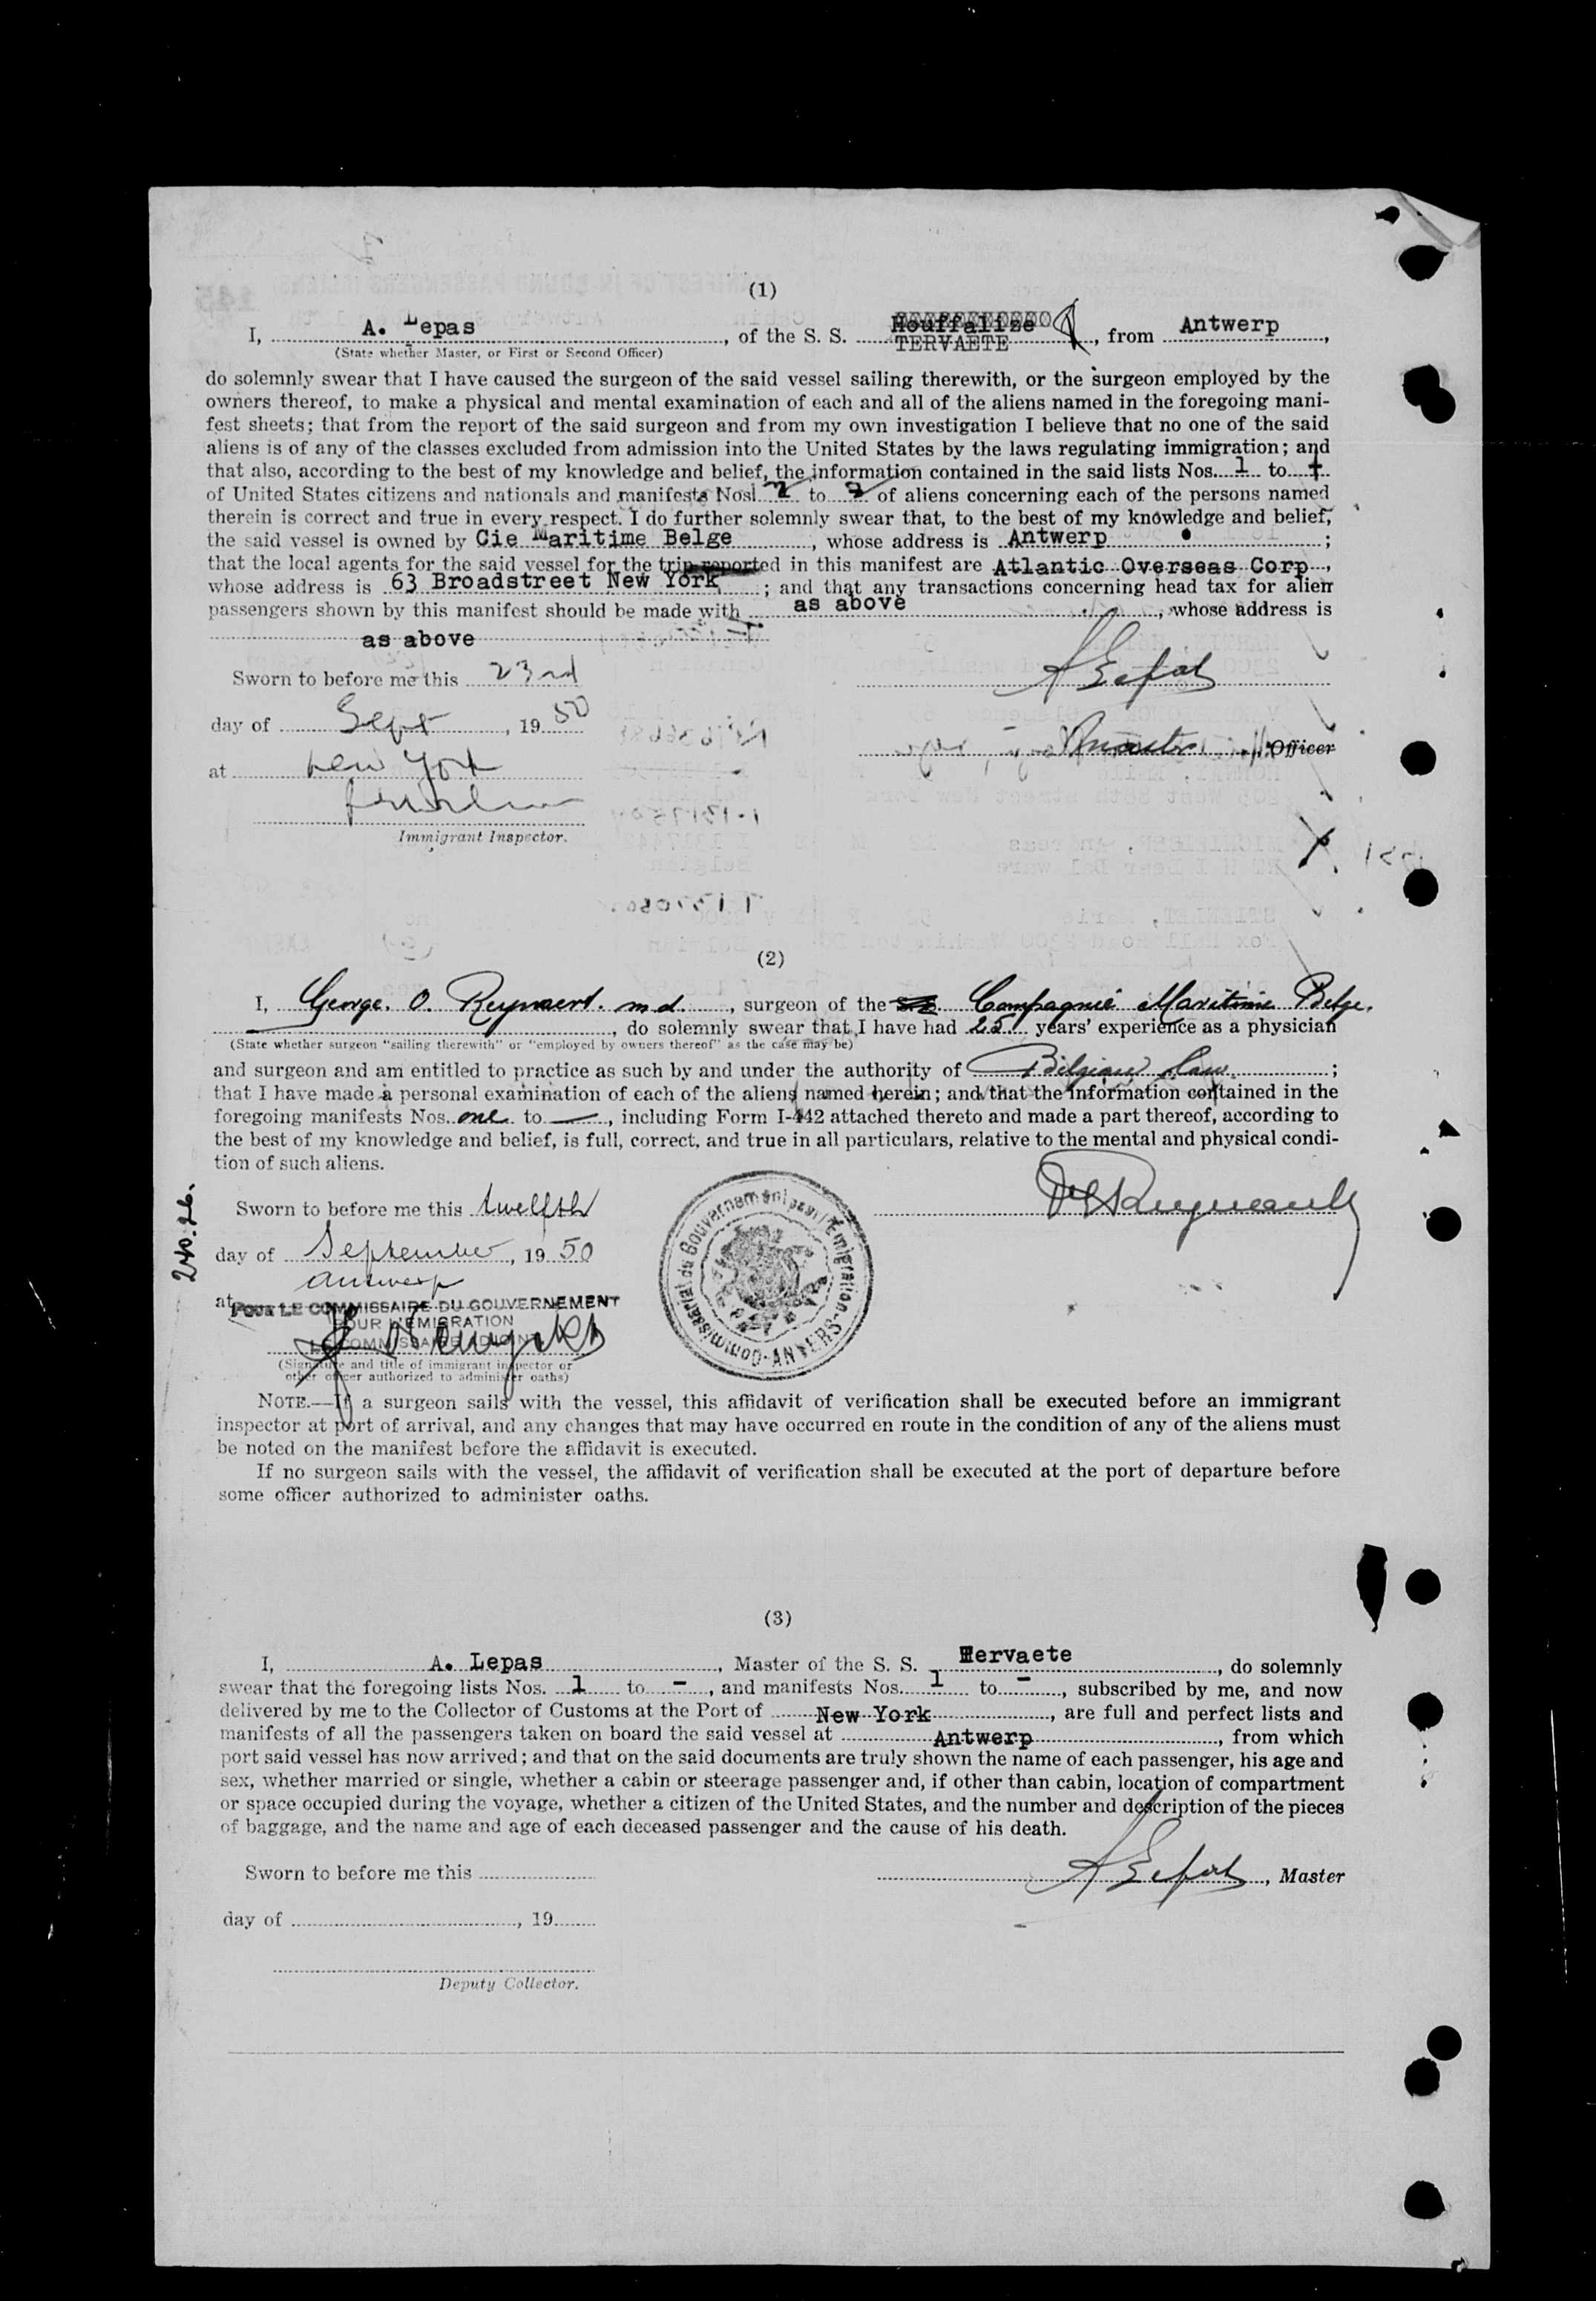 (1)
I, A. Lepas, of the S. S. Houffalize TERVAETE, from Antwerp,
(State whether Master, or First or Second Officer)
do solemnly swear that I have caused the surgeon of the said vessel sailing therewith, or the surgeon employed by the
owners thereof, to make a physical and mental examination of each and all of the aliens named in the foregoing mani-
fest sheets; that from the report of the said surgeon and from my own investigation I believe that no one of the said
aliens is of any of the classes excluded from admission into the United States by the laws regulating immigration; and
that also, according to the best of my knowledge and belief, the information contained in the said lists Nos. 1 to
of United States citizens and nationals and manifests Nos. to 2 of aliens concerning each of the persons named
therein is correct and true in every respect. I do further solemnly swear that, to the best of my knowledge and belief,
the said vessel is owned by Cie Maritime Belge, whose address is Antwerp ;
that the local agents for the said vessel for the trip reported in this manifest are Atlantic Overseas Corp,
whose address is 63 Broadstreet New York ; and that any transactions concerning head tax for alien
passengers shown by this manifest should be made with as above, whose address is
as above
Sworn to before me this 23rd
ALepas
day of Sept, 19 50
Master, Officer
at New York
Immigrant Inspector.
(2)
I, George. O. Reynaert. m.d., surgeon of the S. S. Compagnie Maritime Belge.
, do solemnly swear that I have had 25 years' experience as a physician
(State whether surgeon "sailing therewith" or "employed by owners thereof" as the case may be)
and surgeon and am entitled to practice as such by and under the authority of Belgian Law. ;
that I have made a personal examination of each of the aliens named herein; and that the information contained in the
foregoing manifests Nos. one to —, including Form I-442 attached thereto and made a part thereof, according to
the best of my knowledge and belief, is full, correct, and true in all particulars, relative to the mental and physical condi-
tion of such aliens.
240.26.
Sworn to before me this twelfth
day of September, 19 50
antwerp
at
POUR LE COMMISSAIRE DU GOUVERNEMENT
POUR L'EMIGRATION
LE COMMISSAIRE ADJOINT
(Signature and title of immigrant inspector or
other officer authorized to administer oaths)
Commissariat du Gouvernement pour l'Emigration - ANVERS -
NOTE.—If a surgeon sails with the vessel, this affidavit of verification shall be executed before an immigrant
inspector at port of arrival, and any changes that may have occurred en route in the condition of any of the aliens must
be noted on the manifest before the affidavit is executed.
If no surgeon sails with the vessel, the affidavit of verification shall be executed at the port of departure before
some officer authorized to administer oaths.
(3)
I, A. Lepas, Master of the S. S. Tervaete, do solemnly
swear that the foregoing lists Nos. 1 to -, and manifests Nos. 1 to -, subscribed by me, and now
delivered by me to the Collector of Customs at the Port of New York, are full and perfect lists and
manifests of all the passengers taken on board the said vessel at Antwerp, from which
port said vessel has now arrived; and that on the said documents are truly shown the name of each passenger, his age and
sex, whether married or single, whether a cabin or steerage passenger and, if other than cabin, location of compartment
or space occupied during the voyage, whether a citizen of the United States, and the number and description of the pieces
of baggage, and the name and age of each deceased passenger and the cause of his death.
Sworn to before me this
ALepas, Master
day of , 19
Deputy Collector.